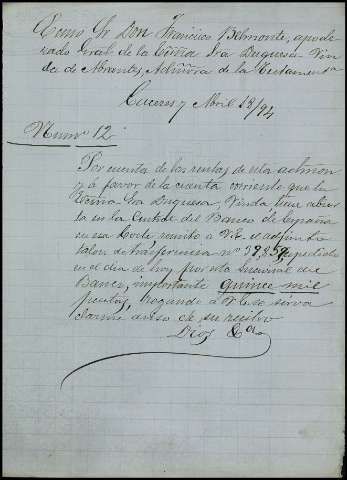 Excmo Sr Don Francisco Belmonte, apode-
rado Gral de la Excma Sra Duquesa Viu-
da de Abrantes, Admora de la Testamentª
Caceres 7 Abril 18/94
Num° 12
Por cuenta de las rentas de esta admon
y á favor de la cuenta corriente que la
Excma Sra Duquesa, Viuda tiene abier-
ta en la Central del Banco de España
en esa Corte, remito a V.E. el adjunto
talon de trasferencia nº 39.859, expedido
en el dia de hoy, por esta Sucursal del
Banco, importante quince mil
pesetas, rogando á V.E. se sirva
darme aviso de su recibo
Dios &ª